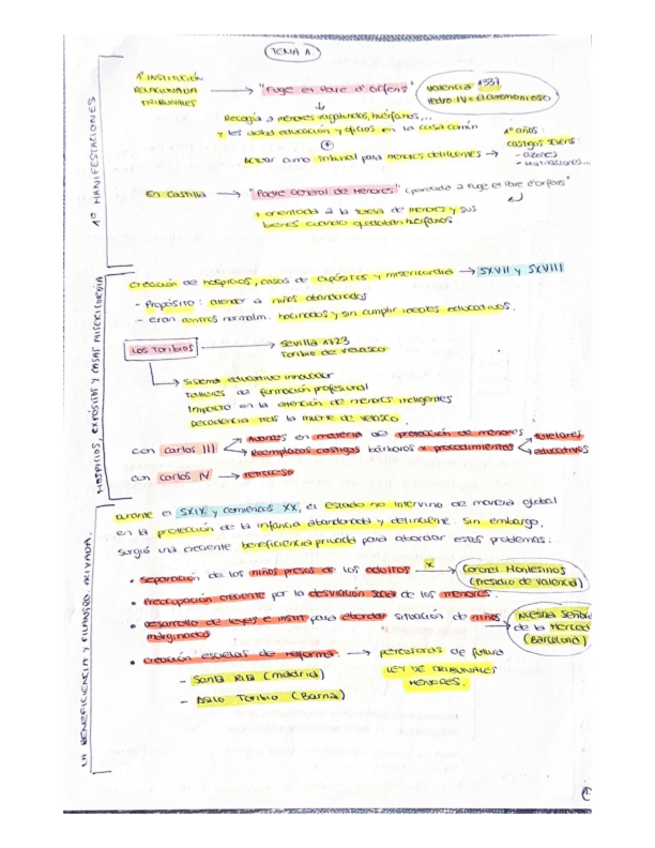 TEMA A.
1ª INSTITUCIÓN
RELACIONADA
TRIBUNALES
"Fuge et Pare d'Orfens"
Valencia 1337
Pedro IV = El Ceremonioso
Recogía a menores vagabundos, huérfanos,...
y les daba educación y oficios en la casa común
Actuar como tribunal para menores delincuentes
1º años:
castigos severos
- azotes
- mutilaciones...
En Castilla
"Padre General de Menores" (parecido a Fuge et Pare d'Orfens"
+ orientada a la tutela de menores y sus
bienes cuando quedaban huérfanos
1º MANIFESTACIONES
creación de hospicios, casas de expósitos y misericordia → SXVII y SXVIII
- Propósito: atender a niños abandonados
- eran centros normalm. hacinados y sin cumplir ideales educativos.
Los Toribios
Sevilla 1723
Toribio de Velasco
Sistema educativo innovador
Talleres de formación profesional
Impacto en la atención de menores indigentes
Decadencia tras la muerte de Velasco
con Carlos III
Avances en materia de protección de menores
Reemplazos castigos bárbaros x procedimientos
tutelares
educativos
con Carlos IV → retroceso
HOSPICIOS, EXPÓSITOS Y CASAS MISERICORDIA
durante el SXIX y comienzos XX, el estado no intervino de manera global
en la protección de la infancia abandonada y delincuente. Sin embargo,
surgió una creciente beneficiencia privada para abordar estos problemas:
• Separación de los niños presos de los adultos
x
Coronel Montesinos
(Presidio de Valencia)
• Preocupación creciente por la desviación social de los menores.
• desarrollo de leyes e instit para abordar situación de niños
marginados
Nuestra Señora
de la Merced
(Barcelona)
• creación escuelas de reforma. → precursoras de futura
LEY DE TRIBUNALES
MENORES.
- Santa Rita (Madrid)
- Asilo Toribio (Barna)
LA BENEFICIENCIA Y FILANTRO. PRIVADA.